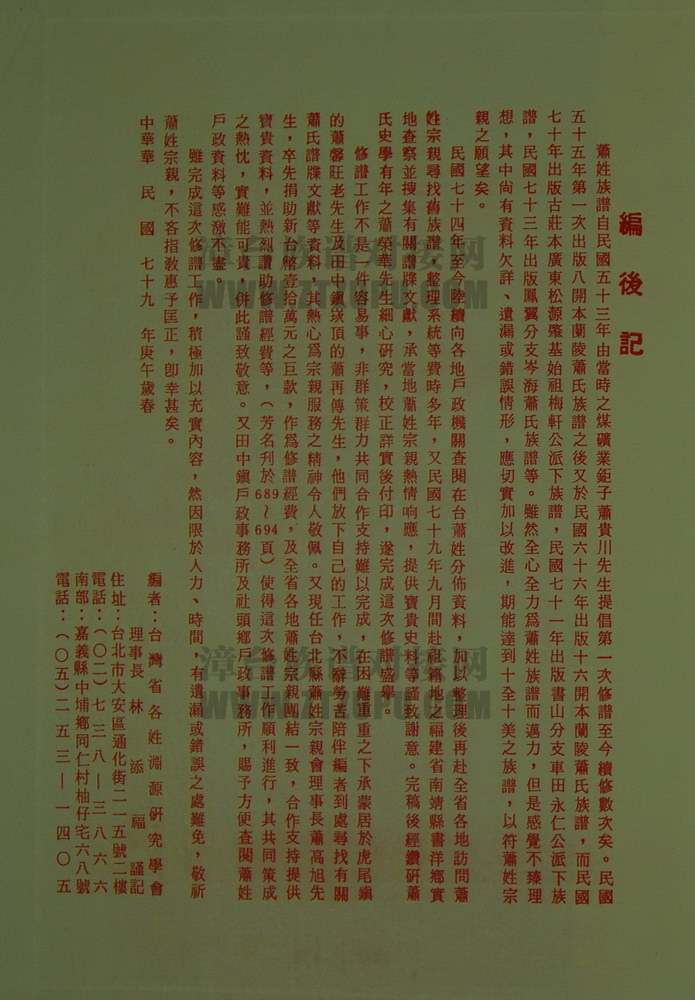 編後記
蕭姓族譜自民國五十三年由當時之煤礦業鉅子蕭貴川先生提倡第一次修譜至今續修數次矣。民國
五十五年第一次出版八開本蘭陵蕭氏族譜之後又於民國六十六年出版十六開本蘭陵蕭氏族譜，而民國
七十年出版古莊本廣東松源肇基始祖梅軒公派下族譜，民國七十一年出版書山分支車田永仁公派下族
譜，民國七十三年出版鳳翼分支岑海蕭氏族譜等。雖然全心全力為蕭姓族譜而邁力，但是感覺不臻理
想，其中尚有資料欠詳、遺漏或錯誤情形，應切實加以改進，期能達到十全十美之族譜，以符蕭姓宗
親之願望矣。
民國七十四年至今陸續向各地戶政機關查閱在台蕭姓分佈資料，加以整理後再赴全省各地訪問蕭
姓宗親尋找舊族譜，整理系統等費時多年，又民國七十九年九月間赴祖籍地之福建省南靖縣書洋鄉實
地查察並搜集有關譜牒文獻，承當地蕭姓宗親熱情响應，提供寶貴史料等謹致謝意。完稿後經鑽研蕭
氏史學有年之蕭榮華先生細心研究，校正詳實後付印，遂完成這次修譜盛舉。
修譜工作不是一件容易事，非群策群力共同合作支持難以完成，在困難重重之下承蒙居於虎尾鎮
的蕭馨旺老先生及田中鎮崁頂的蕭再傳先生，他們放下自己的工作，不辭勞苦陪伴編者到處尋找有關
蕭氏譜牒文獻等資料，其熱心為宗親服務之精神令人敬佩。又現任台北縣蕭姓宗親會理事長蕭高旭先
生，卒先捐助新台幣壹拾萬元之巨款，作為修譜經費，及全省各地蕭姓宗親團結一致，合作支持提供
寶貴資料，並熱烈贊助修譜經費等，（芳名刊於689～694頁）使得這次修譜工作順利進行，其共同策成
之熱忱，實難能可貴，併此謹致敬意。又田中鎮戶政事務所及社頭鄉戶政事務所，賜予方便查閱蕭姓
戶政資料等感激不盡。
雖完成這次修譜工作，積極加以充實內容，然因限於人力、時間，有遺漏或錯誤之處難免，敬祈
蕭姓宗親，不吝指教惠予匡正，卽幸甚矣。
中華華民國七十九　年庚午歲春
編者：台灣省各姓淵源研究學會
理事長　林　添　福　謹記
住址：台北市大安區通化街二一五號二樓
電話：（〇二）七三八—三八六六
南部：嘉義縣中埔鄉同仁村柚仔宅六八號
電話：（〇五）二五三—一四〇五
漳台族谱对接网
WWW.ZTZUPU.COM
漳台族谱对接网
WWW.ZTZUPU.COM